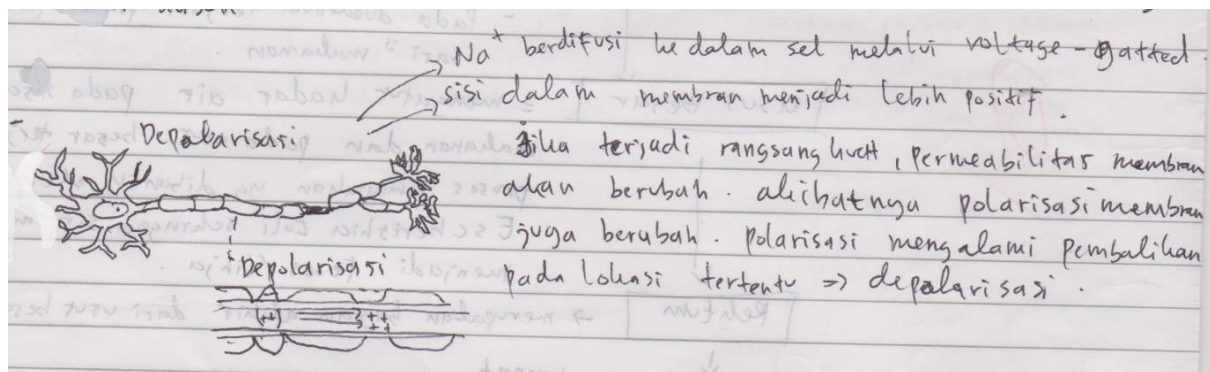 Na+ berdifusi ke dalam sel melalui voltage-gatted.
sisi dalam membran menjadi lebih positif.
- Depolarisasi
Jika terjadi rangsang kuat, permeabilitas membran
akan berubah. akibatnya polarisasi membran
juga berubah. polarisasi mengalami pembalikan
pada lokasi tertentu => depolarisasi.
Depolarisasi